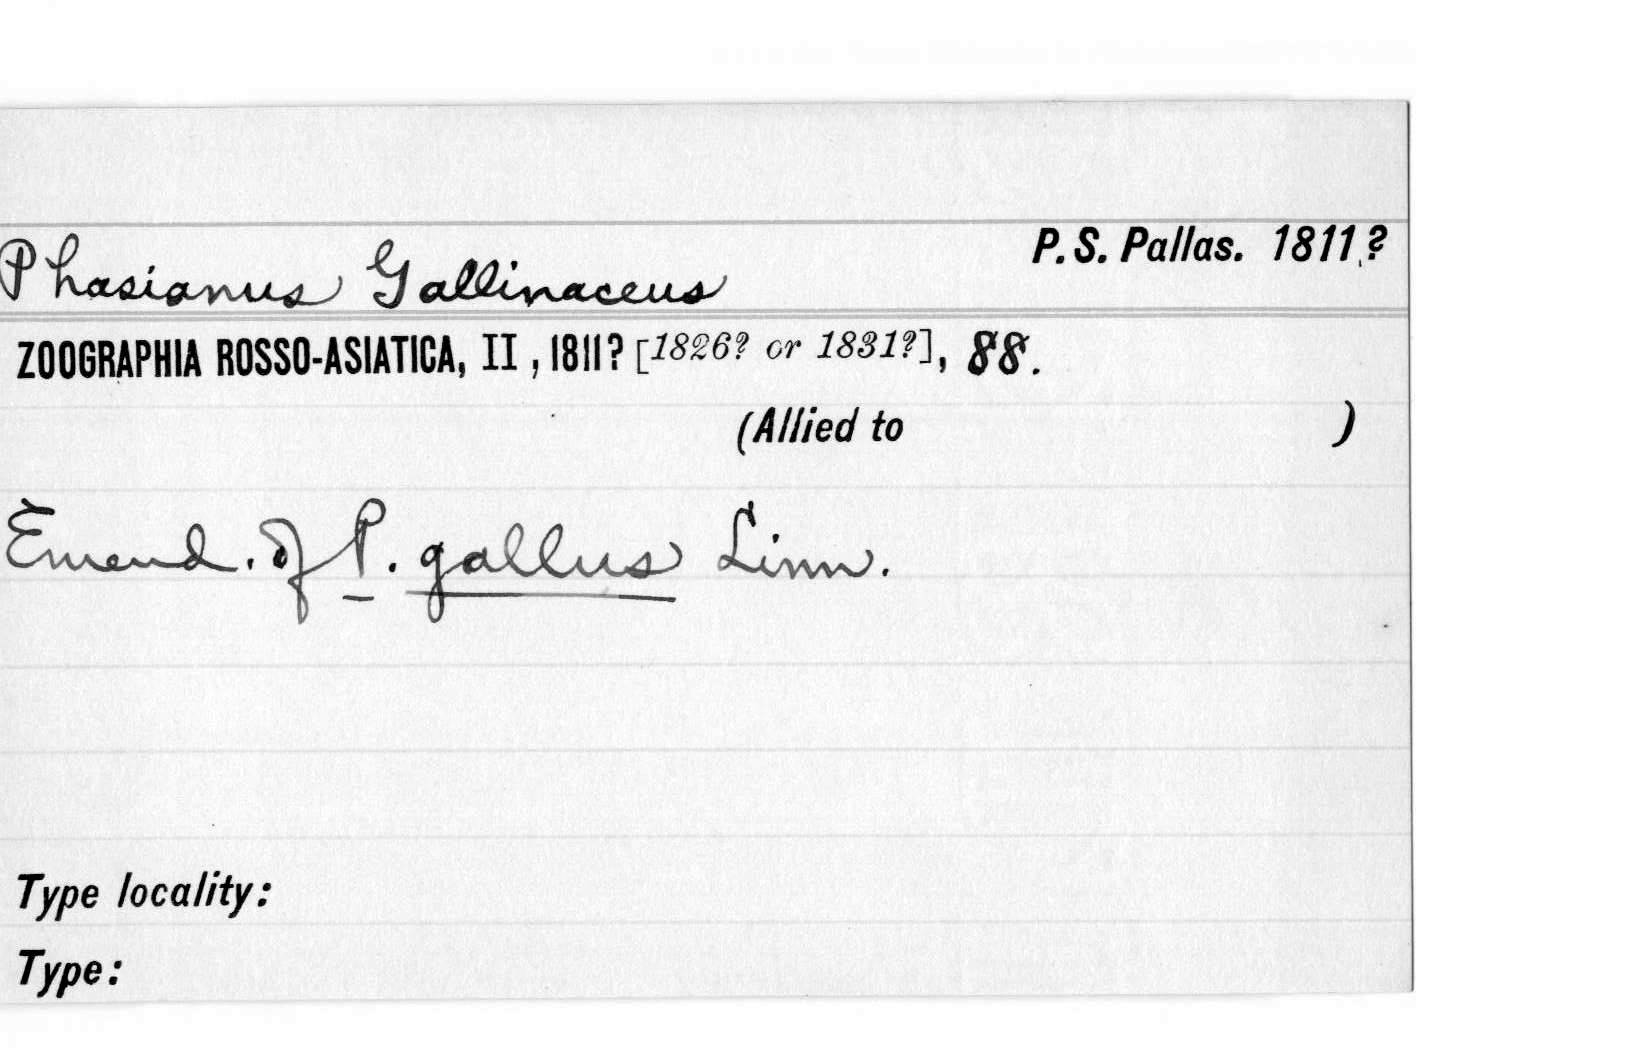 P. S. Pallas. 1811?
Phasianus Gallinaceus
ZOOGRAPHIA ROSSO-ASIATICA, II, 1811? [1826? or 1831?], 88.
(Allied to )
Emend. of P. gallus Linn.
Type locality:
Type: